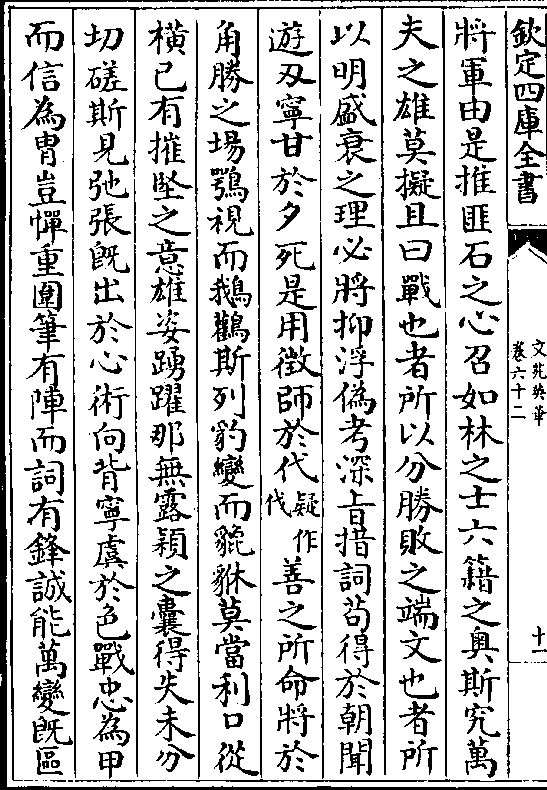 欽定四庫全書
文苑英華
卷六十二
十一
將軍由是推匪石之心召如林之士六籍之奥斯究萬
夫之雄莫擬且曰戰也者所以分勝敗之端文也者所
以明盛衰之理必將抑浮偽考深旨措詞苟得於朝聞
遊刃寧甘於夕死是用徴師於代疑作伐善之所命將於
角勝之場鶚視而鵝鸛斯列豹變而貔貅莫當利口從
横已有摧堅之意雄姿踴躍那無露穎之囊得失未分
切磋斯見弛張既出於心術向背寧虞於色戰忠為甲
而信為胄豈憚重圍筆有陣而詞有鋒誠能萬變既區